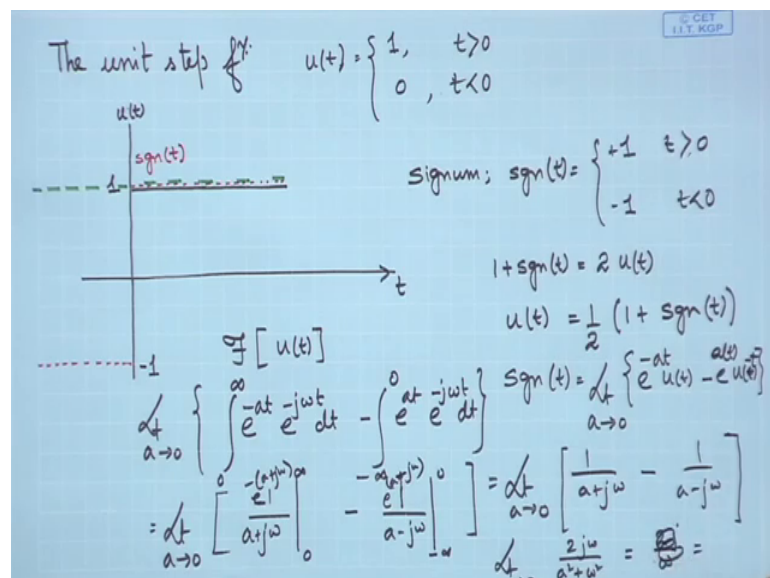 © CET
I.I.T. KGP
The unit step fn. u(t) = { 1, t>0
0, t<0
u(t)
sgn(t)
1
t
-1
signum; sgn(t) = { +1 t≥0
-1 t<0
1+sgn(t) = 2 u(t)
u(t) = 1/2 (1 + sgn(t))
ℱ[u(t)]
sgn(t) = Lt a→0 { e^{-at} u(t) - e^{at} u(-t) }
Lt a→0 { ∫_0^∞ e^{-at} e^{-jωt} dt - ∫_{-∞}^0 e^{at} e^{-jωt} dt }
= Lt a→0 [ e^{-(a+jω)} / a+jω |_0^∞ - e^{(a+jω)} / a-jω |_{-∞}^0 ] = Lt a→0 [ 1/a+jω - 1/a-jω ]
Lt 2jω / a²+ω² = =